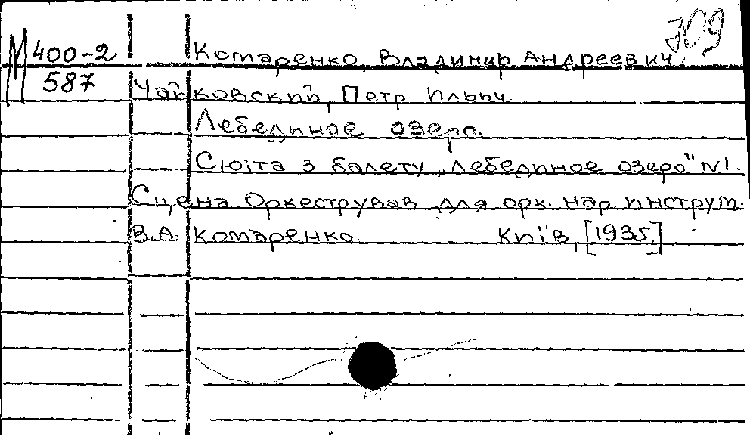 709
М 400-2 Комаренко, Владимир Андреевич.
587 Чайковский, Петр Ильич.
Лебединое озеро.
Сюіта з балету „Лебединое озеро" №1.
Сцена. Оркестрував для орк. нар. инструм.
В.А. Комаренко Київ, [1935.]